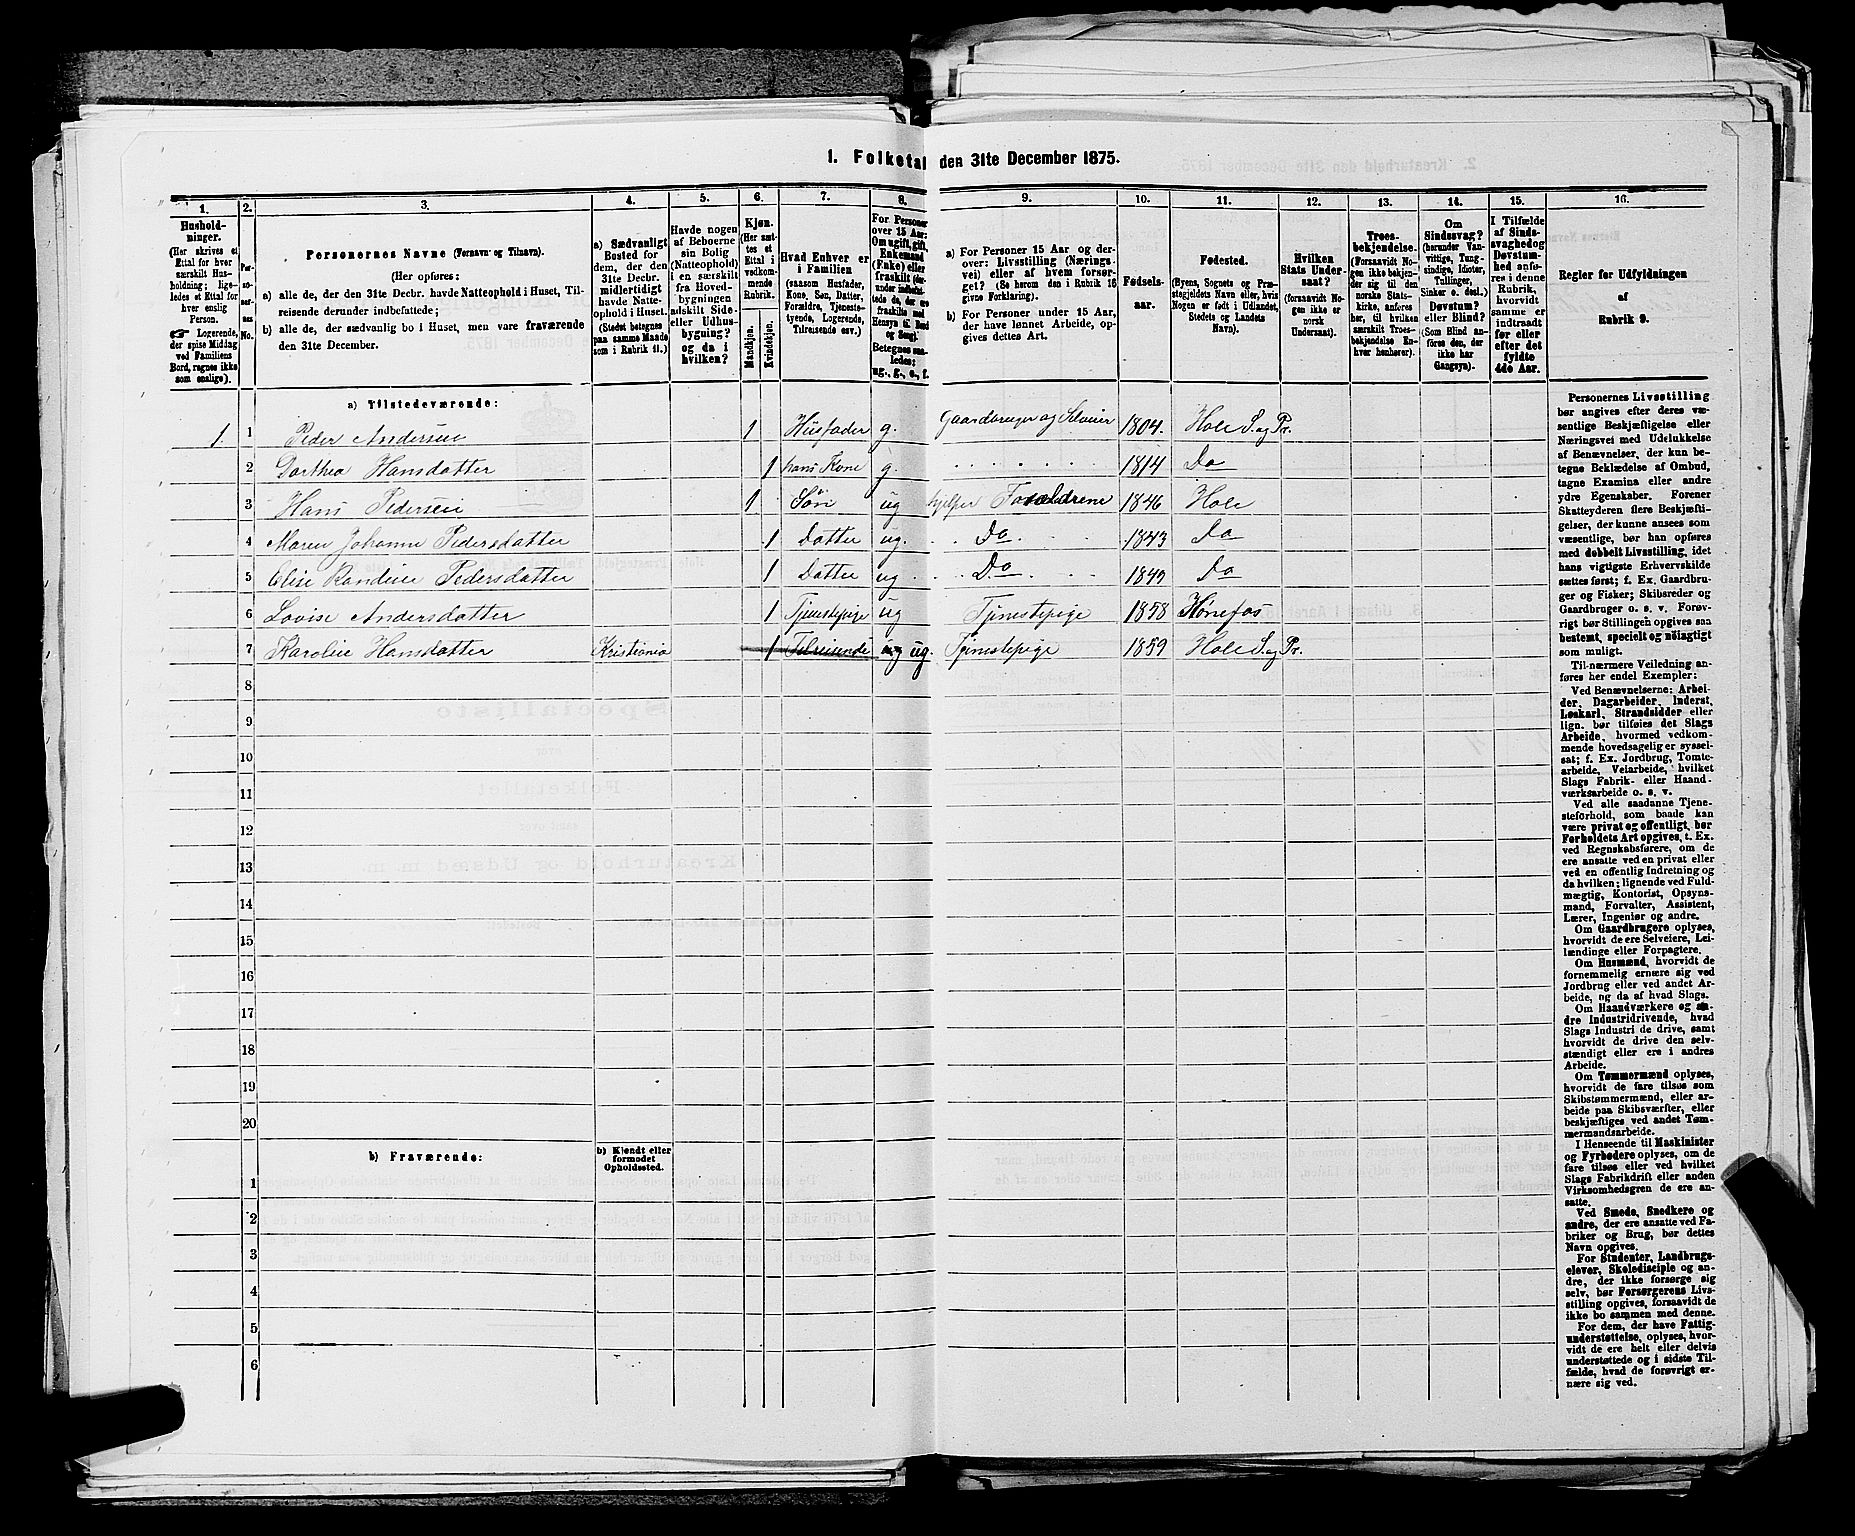 1. Folketal den 31te December 1875.
1.
Hushold-
ninger.
(Her skrives et
Ettal for hver
særskilt Hus-
holdning; lige-
ledes et Ettal for
hver enslig
Person.
☞ Logerende,
der spise Middag
ved Familiens
Bord, regnes ikke
som enslige).
2.
Per-
so-
ner-
nes
No.
3.
Personernes Navne (Fornavn og Tilnavn).
(Her opføres:
a) alle de, der den 31te Decbr. havde Natteophold i Huset, Til-
reisende derunder indbefattede;
b) alle de, der sædvanlig bo i Huset, men vare fraværende
den 31te December.
4.
a) Sædvanligt
Bosted for
dem, der den
31te Decbr.
midlertidigt
havde Natte-
ophold i Huset.
(Stedet betegnes
paa samme Maade
som i Rubrik 11.)
5.
Havde nogen
af Beboerne
sin Bolig
(Natteophold)
i en særskilt
fra Hoved-
bygningen
adskilt Side-
eller Udhus-
bygning?
og da i
hvilken?
6.
Kjøn.
(Her sæt-
tes et
Ettal i
vedkom-
mende
Rubrik.
Mandkjøn.
Kvindekjøn.
7.
Hvad Enhver er
i Familien
(saasom Husfader,
Kone, Søn, Datter,
Forældre, Tjeneste-
tyende, Logerende,
Tilreisende osv.)
8.
For Personer
over 15 Aar:
Om ugift, gift,
Enkemand
(Enke) eller
fraskilt
Betegnes saa-
ledes:
ug., g., e., f.
9.
a) For Personer 15 Aar og der-
over: Livsstilling (Nærings-
vei) eller af hvem forsør-
get? (Se herom den i Rubrik 16
givne Forklaring).
b) For Personer under 15 Aar,
der have lønnet Arbeide, op-
gives dettes Art.
10.
Fødsels-
aar.
11.
Fødested.
(Byens, Sognets og Præ-
stegjeldets Navn eller, hvis
Nogen er født i Udlandet,
Stedets og Landets
Navn).
12.
Hvilken
Stats Under-
saat?
(foraavidt No-
gen ikke er
norsk
Undersaat).
13.
Troes-
bekjendelse.
(Forsaavidt No-
gen ikke bekjen-
der sig til den
norske Stats-
kirke, anføres
her, til hvilken
særskilt Troes-
bekjendelse En-
hver henhører).
14.
Om
Sindssvag?
(herunder Van-
vittige, Tung-
sindige, Idioter,
Tullinger,
Sinker o. desl.)
Døvstum?
eller Blind?
(Som Blind an-
føres den, der
ikke har
Gangsyn).
15.
I Tilfælde
af Sinds-
svaghed og
Døvstum-
hed anfø-
res i denne
Rubrik,
hvorvidt
samme er
indtraadt
før eller
efter det
fyldte
4de Aar.
16.
Regler for Udfyldningen
af
Rubrik 9.
a) Tilstedeværende:
1. 1 Peder Andersen 1 Husfader g. Gaardbruger og Selveier 1804. Hole S. og Pr.
2 Dorthea Hansdatter 1 hans Kone g. 1814 Do
3 Hans Pedersen 1 Søn ug hjelper Forældrene 1846 Hole
4 Maren Johanne Pedersdatter 1 Datter ug. Do 1843 Do
5 Elise Randine Pedersdatter 1 Datter ug Do 1849 Do
6 Lovise Andersdatter 1 Tjenestepige ug Tjenestepige 1858 Hönefos
7 Karoline Hansdatter Kristiania 1 Tilreisende ug ug. Tjenestepige 1859 Hole S. og Pr.
8
9
10
11
12
13
14
15
16
17
18
19
20
b) Fraværende:
b) Kjendt eller
formodet
Opholdssted.
1
2
3
4
5
6
Personernes Livsstilling
bør angives efter deres væ-
sentlige Beskjæftigelse eller
Næringsvei med Udelukkelse
af Benævnelser, der kun be-
tegne Beklædelse af Ombud,
tagne Examina eller andre
ydre Egenskaber. Forener
Skatteyderen flere Beskjæfti-
gelser, der kunne ansees som
væsentlige, bør han opføres
med dobbelt Livsstilling, idet
hans vigtigste Erhvervskilde
sættes først; f. Ex. Gaardbru-
ger og Fisker; Skibsreder og
Gaardbruger o. s. v. Forøv-
rigt bør Stillingen opgives saa
bestemt, specielt og nøiagtigt
som muligt.
Til nærmere Veiledning an-
føres her endel Exempler:
Ved Benævnelserne: Arbei-
der, Dagarbeider, Inderst,
Løskarl, Strandsidder eller
lign. bør tilføies det Slags
Arbeide, hvormed vedkom-
mende hovedsagelig er syssel-
sat; f. Ex. Jordbrug, Tomte-
arbeide, Veiarbeide, hvilket
Slags Fabrik- eller Haand-
værksarbeide o. s. v.
Ved alle saadanne Tjene-
steforhold, som baade kan
være privat og offentligt, bør
Forholdets Art opgives, t. Ex.
ved Regnskabsførere, om de
ere ansatte ved en privat eller
ved en offentlig Indretning og
da hvilken; lignende ved Fuld-
mægtig, Kontorist, Opsyns-
mand, Forvalter, Assistent,
Lærer, Ingeniør og andre.
Om Gaardbrugere oplyses,
hvorvidt de ere Selveiere, Lei-
lændinge eller Forpagtere.
Om Husmænd, hvorvidt de
fornemmelig ernære sig ved
Jordbrug eller ved andet Ar-
beide, og da af hvad Slags.
Om Haandværkere og an-
dre Industridrivende, hvad
Slags Industri de drive, samt
hvorvidt de drive den selv-
stændigt eller ere i andres
Arbeide.
Om Tømmermænd oplyses,
hvorvidt de fare tilsøs som
Skibstømmermænd, eller ar-
beide paa Skibsværfter, eller
beskjæftiges ved andet Tøm-
mermandsarbeide.
I Henseende til Maskinister
og Fyrbødere oplyses, om de
fare tilsøs eller ved hvilket
Slags Fabrikdrift eller anden
Virksomhedsgren de ere an-
satte.
Ved Smede, Snedkere og
andre, der ere ansatte ved Fa-
briker og Brug, bør dettes
Navn opgives.
For Studenter, Landbrugs-
elever, Skoledisciple og an-
dre, der ikke forsørge sig
selv, bør Forsørgerens Livs-
stilling opgives, forsaavidt de
ikke bo sammen med denne.
For dem, der have Fattig-
understøttelse, oplyses, hvor-
vidt de ere helt eller delvis
understøttede og i sidste Til-
fælde, hvad de forøvrigt er-
nære sig ved.